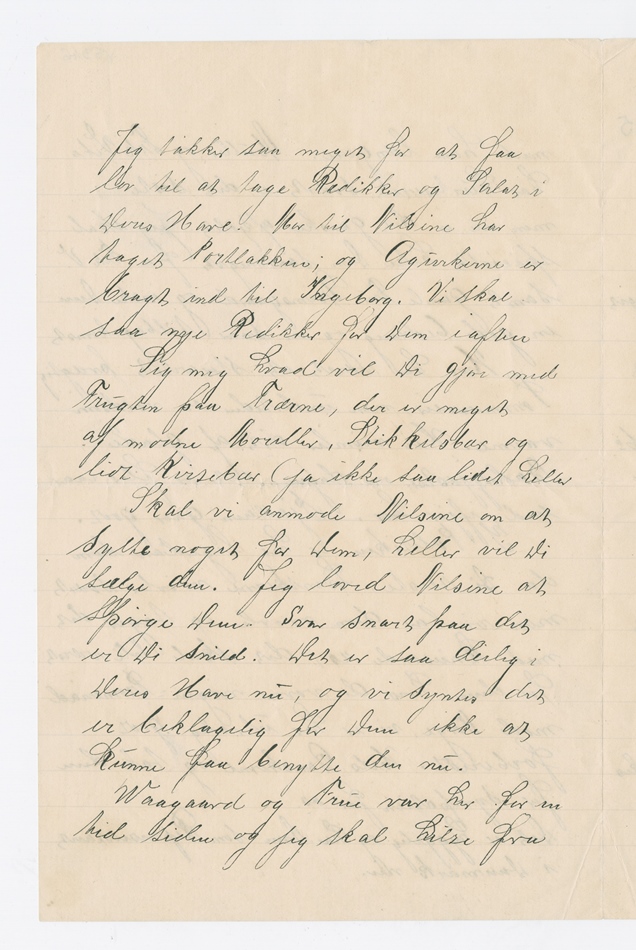 Jeg takker saa meget for at faa
lov til at tage Redikker og Salat i
Deres Have. Mor til Nilsine har
taget Portlakken; og Agurkerne er
bragt ind til Ingeborg. Vi skal
saa nye Redikker for Dem iaften
Sig mig hvad vil Di gjøre med
Frugten paa Trærne, der er meget
af modne Moreller, Stikkelsbær og
lidt Kirsebær (ja ikke saa lidet heller
Skal vi anmode Nilsine om at
Sylte noget for Dem, heller vil Di
Sælge den. Jeg loved Nilsine at
Spörge Dem. Svar snart paa det
er Di snild. Det er saa deilig i
Deres Have nu, og vi Syntes det
er beklagelig for Dem ikke at
kunne faa benytte den nu.
Waagaard og Frue var her for en
tid siden og jeg skal hilse fra